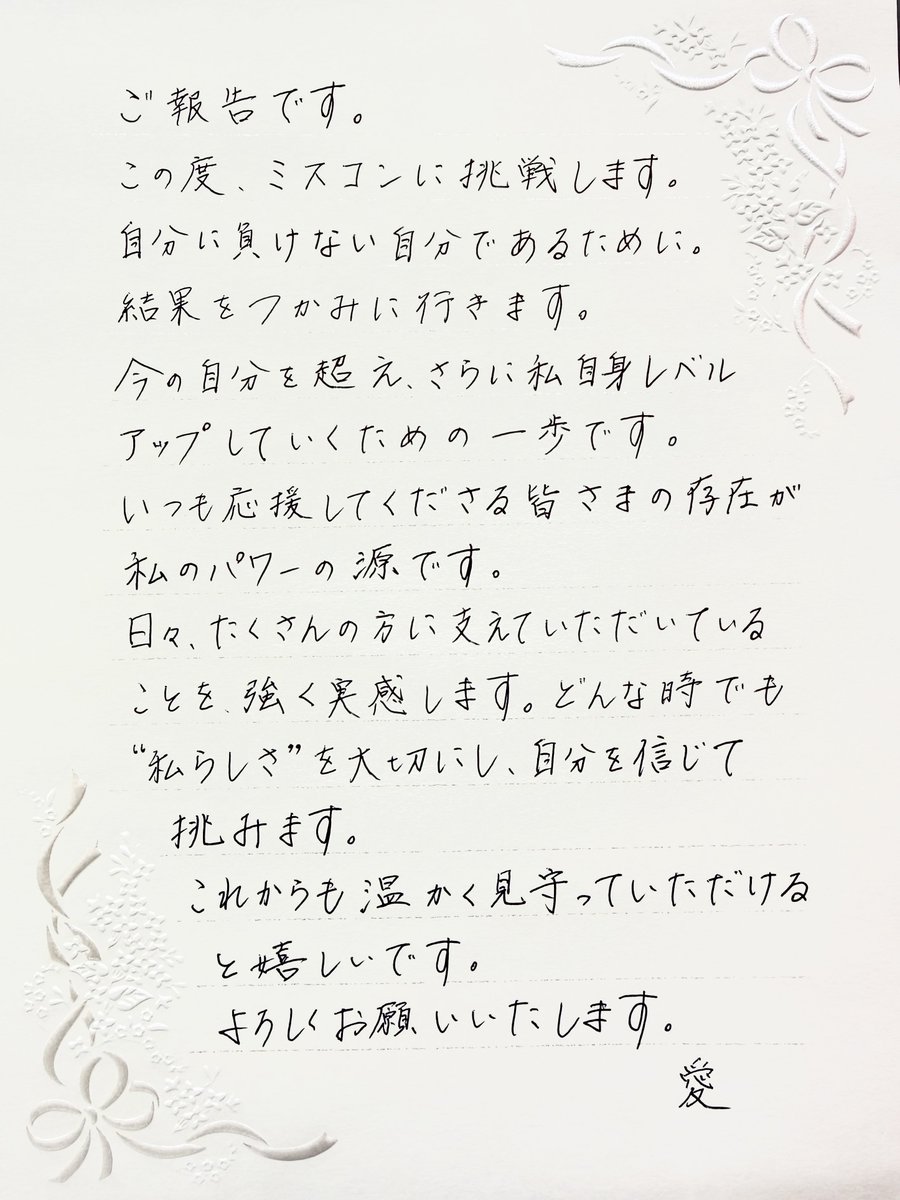 ご報告です。
この度、ミスコンに挑戦します。
自分に負けない自分であるために。
結果をつかみに行きます。
今の自分を超え、さらに私自身レベル
アップしていくための一歩です。
いつも応援してくださる皆さまの存在が
私のパワーの源です。
日々、たくさんの方に支えていただいている
ことを、強く実感します。どんな時でも
“私らしさ”を大切にし、自分を信じて
挑みます。
これからも温かく見守っていただける
と嬉しいです。
よろしくお願いいたします。
愛